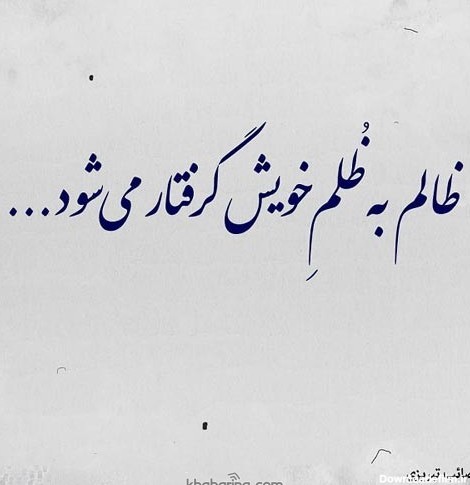 ظالم به ظُلمِ خویش گرفتار می‌شود...
صائب تبریزی
khabaring.com